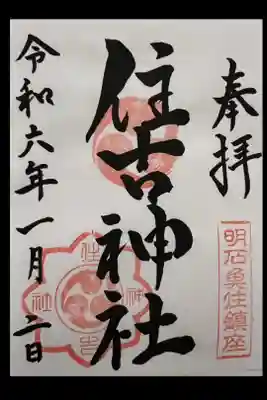 奉拝
明石魚住鎮座
住吉神社
住
吉
神
社
令和六年一月二日